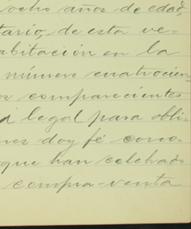 ocho años de edad,
tario, de esta ve-
abitación en la
número cuatrocien
os comparecientes
d legal para obli-
nes doy fé cono-
que han celebrado
compra-venta